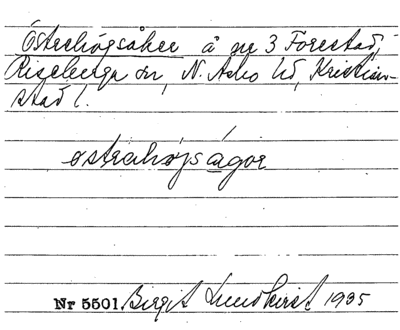 Östrehögsåker å nr 3 Forestad,
Riseberga sn, N. Åsbo hd, Kristian-
stad l.
østrahøjsågor
Nr 5501 Birgit Lundkvist 1935